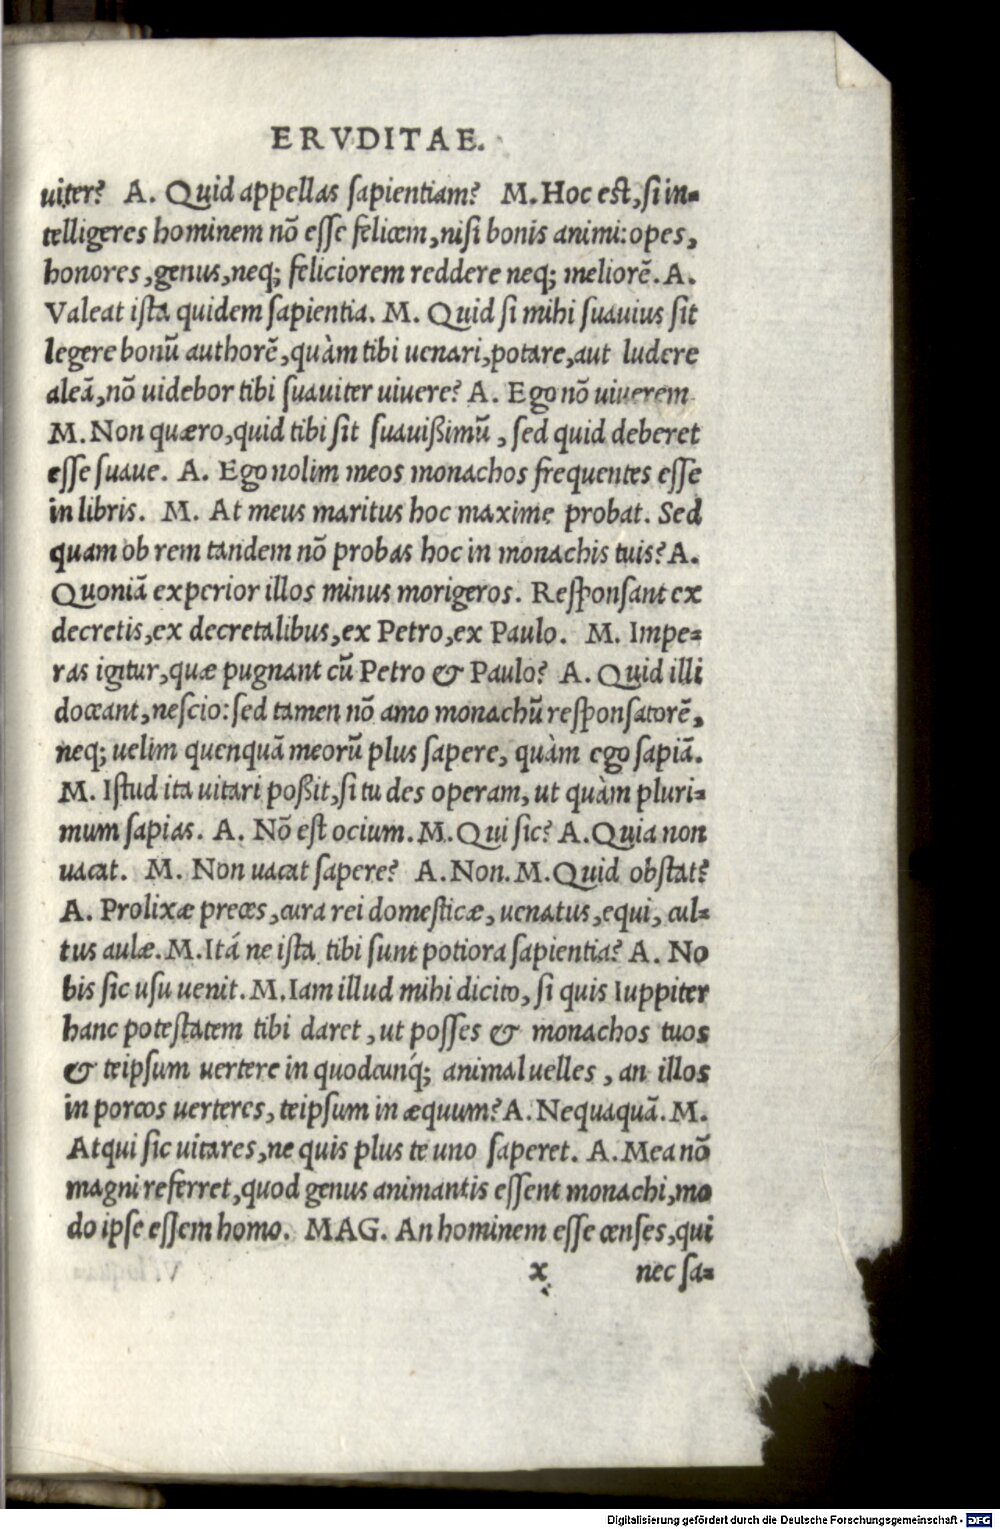 ERVDITAE.
uiter? A. Quid appellas sapientiam? M. Hoc est, si in=
telligeres hominem nõ esse felicem, nisi bonis animi: opes,
honores, genus, neq; feliciorem reddere neq; meliorẽ. A.
Valeat ista quidem sapientia. M. Quid si mihi suauius sit
legere bonũ authorẽ, quàm tibi uenari, potare, aut ludere
aleã, nõ uidebor tibi suauiter uiuere? A. Ego nõ uiuerem
M. Non quæro, quid tibi sit suauißimũ, sed quid deberet
esse suaue. A. Ego nolim meos monachos frequentes esse
in libris. M. At meus maritus hoc maxime probat. Sed
quam ob rem tandem nõ probas hoc in monachis tuis? A.
Quoniã experior illos minus morigeros. Responsant ex
decretis, ex decretalibus, ex Petro, ex Paulo. M. Impe=
ras igitur, quæ pugnant cũ Petro & Paulo? A. Quid illi
doceant, nescio: sed tamen nõ amo monachũ responsatorẽ,
neq; uelim quenquã meorũ plus sapere, quàm ego sapiã.
M. Istud ita uitari poßit, si tu des operam, ut quàm pluri=
mum sapias. A. Nõ est ocium. M. Qui sic? A. Quia non
uacat. M. Non uacat sapere? A. Non. M. Quid obstat?
A. Prolixæ preces, cura rei domesticæ, uenatus, equi, cul=
tus aulæ. M. Itá ne ista tibi sunt potiora sapientia? A. No
bis sic usu uenit. M. Iam illud mihi dicito, si quis Iuppiter
hanc potestatem tibi daret, ut posses & monachos tuos
& teipsum uertere in quodcunq́; animal uelles, an illos
in porcos uerteres, teipsum in æquum? A. Nequaquã. M.
Atqui sic uitares, ne quis plus te uno saperet. A. Mea nõ
magni referret, quod genus animantis essent monachi, mo
do ipse essem homo. MAG. An hominem esse censes, qui
x nec sa=
Digitalisierung gefördert durch die Deutsche Forschungsgemeinschaft - DFG